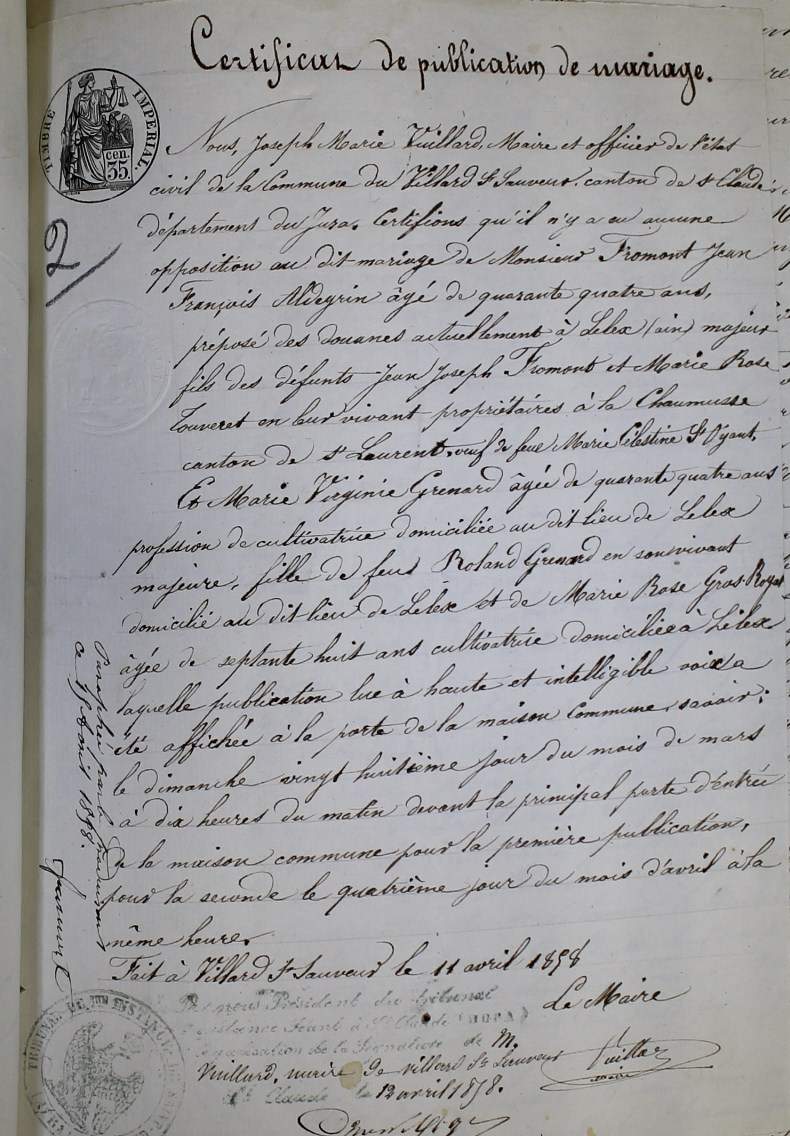 Certificat de publication de mariage.
TIMBRE IMPERIAL.
cen.
35.
2/
Nous, Joseph Marie Vuillard, Maire et officier de l'état
civil de la Commune du Villard St Sauveur. canton de St Claude
département du Jura. Certifions qu'il n'y a eu aucune
opposition au dit mariage de Monsieur Fromont Jean
François Aldegrin âgé de quarante quatre ans,
préposé des douanes actuellement à Lelex (ain) majeur
fils des défunts Jean Joseph Fromont et Marie Rose
Touveret en leur vivant propriétaires à la Chaumusse
canton de St Laurent. veuf de feue Marie Célestine St Oyant.
Et Marie Virginie Grenard âgée de quarante quatre ans
profession de cultivatrice domiciliée au dit lieu de Lelex
majeure, fille de feu Roland Grenard en son vivant
domicilié au dit lieu de Lélex et de Marie Rose Gros-Royat
âgée de septante huit ans cultivatrice domiciliée à Lélex
laquelle publication lue à haute et intelligible voix a
été affichée à la porte de la maison Commune, savoir:
le dimanche vingt huitième jour du mois de mars
à dix heures du matin devant la principal porte d'entrée
de la maison commune pour la première publication,
pour la seconde le quatrième jour du mois d'avril à la
même heure.
Fait à Villard St Sauveur le 11 avril 1858
Le Maire
Vuillard
Par nous Président du tribunal
d'instance séant à St Claude (JURA)
Légalisation de la signature de M.
Vuillard, maire de villard St Sauveur
St Claude le 12 avril 1858.
ce avril 1858.
TRIBUNAL DE 1ER INSTANCE DE SAINT